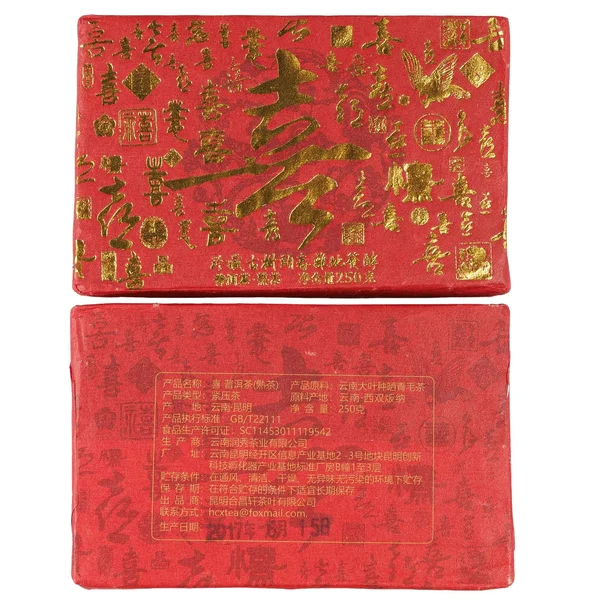 喜
净含量250克
产品名称：喜·普洱茶(熟茶) 产品原料：云南大叶种晒青毛茶
产品类型：紧压茶 原料产地：云南·西双版纳
产 地：云南·昆明 净 含 量：250克
产品执行标准：GB/T22111
食品生产许可证：SC11453011119542
生 产 商：云南润秀茶业有限公司
厂 址：云南昆明经开区信息产业基地2-3号地块昆明创新
科技孵化器产业基地标准厂房B幢1至3层
贮存条件：在通风、清洁、干燥、无异味无污染的环境下贮存
保 存 期：在符合贮存的条件下适宜长期保存
出 品 商：昆明合昌轩茶叶有限公司
联系方式：hcxtea@foxmail.com
生产日期：2017年 6月 15日